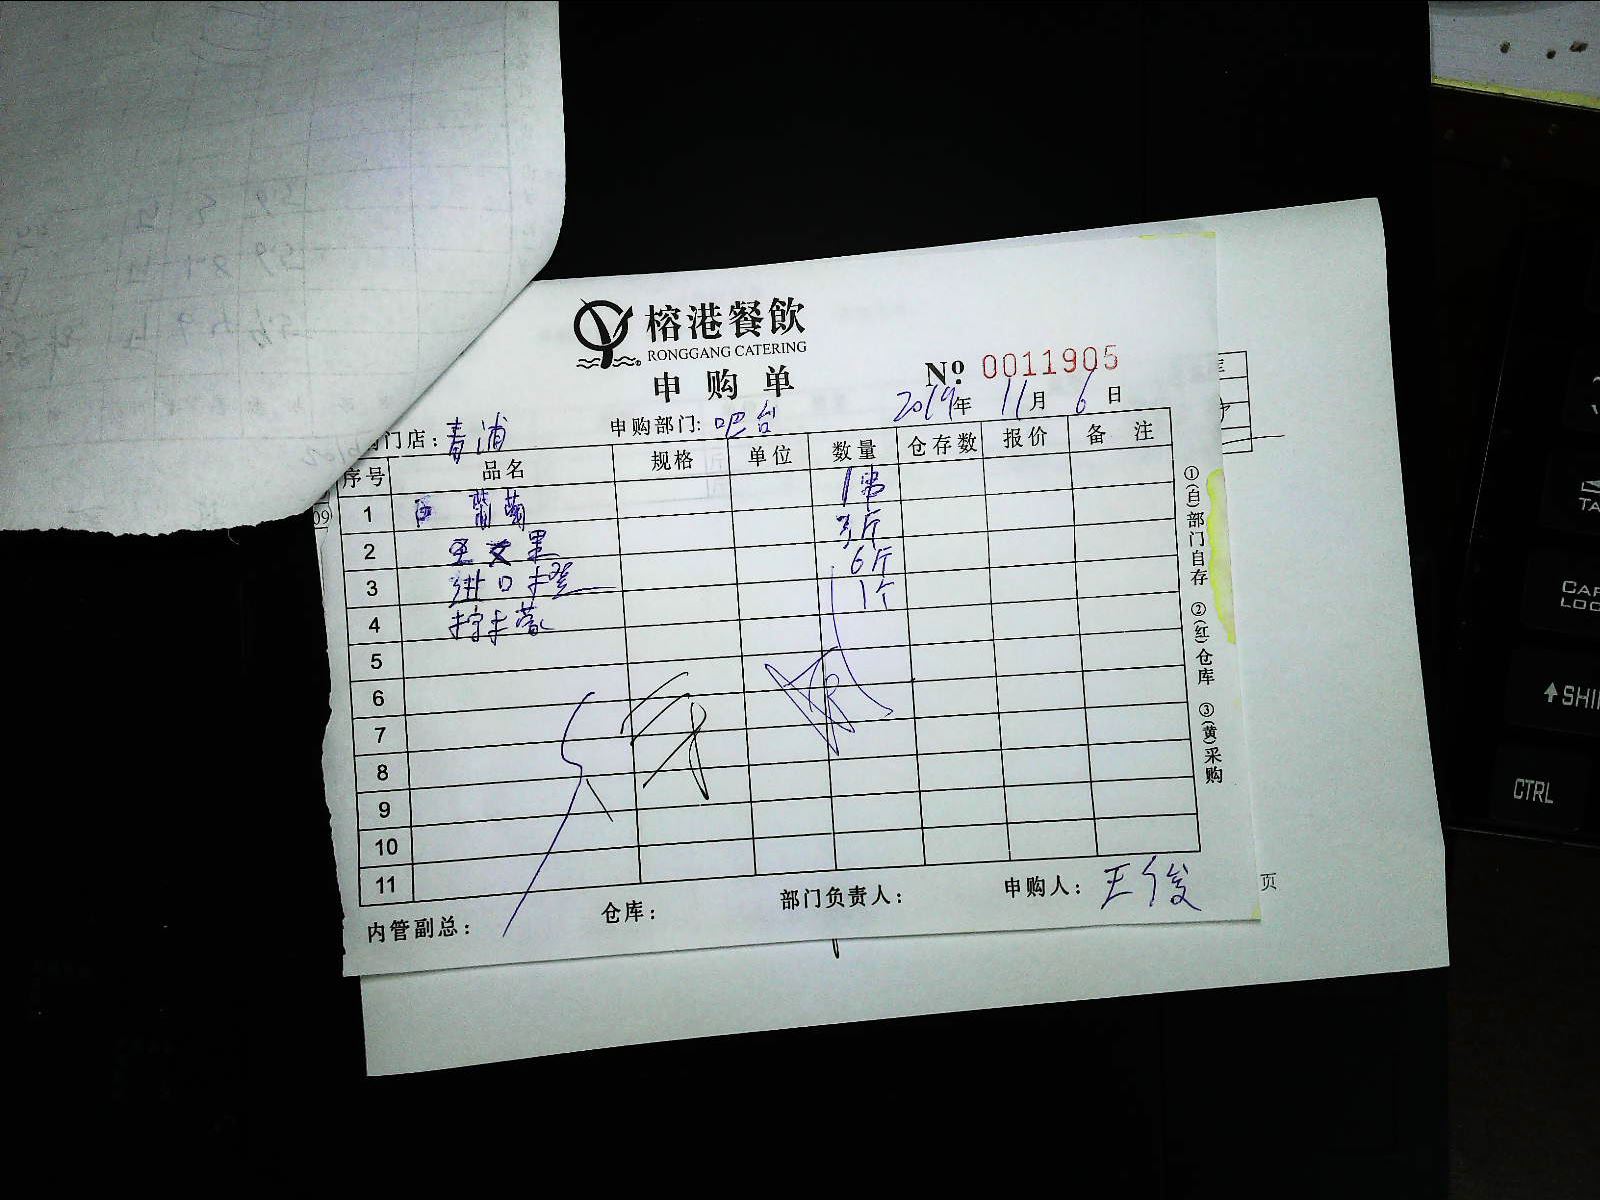 榕港餐飲
RONGGANG CATERING
申购单
№ 0011905
2019年 11月 6日
门店：青浦 申购部门：吧台
序号 品名 规格 单位 数量 仓存数 报价 备注
1 葡萄 1串
2 3斤
3 进口橙 6斤
4 柠檬 1个
5
6
7
8
9
10
11
内管副总： 仓库： 部门负责人： 申购人：王俊
①(白)部门自存 ②(红)仓库 ③(黄)采购
09)
页
TA
CAP
LOC
SHI
CTRL